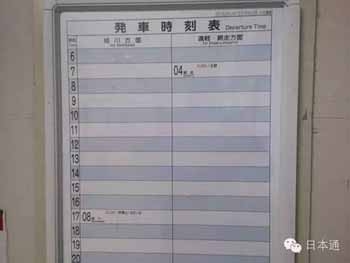 発車時刻表 Departure Time
旭川方面
遠軽 網走方面
6
7 04
8
9
10
11
12
13
14
15
16
17 08
18
19
20
日本通